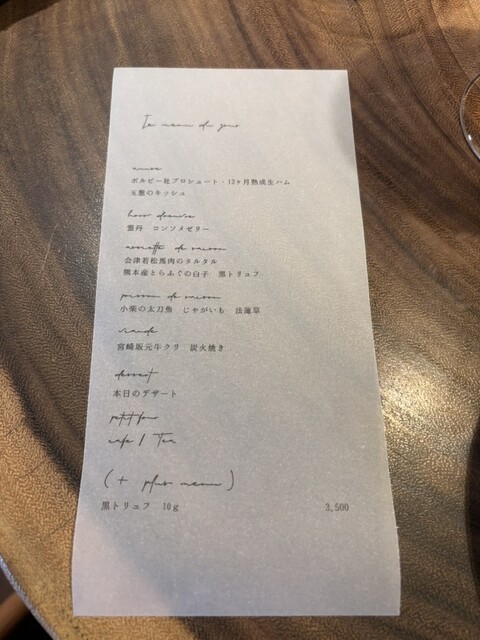 Le menu du jour
amuse
ボルピー社プロシュート・12ヶ月熟成生ハム
玉葱のキッシュ
雲丹 コンソメゼリー
assiette de saison
会津若松馬肉のタルタル
熊本産とらふぐの白子 黒トリュフ
poisson de saison
小柴の太刀魚 じゃがいも 法蓮草
viande
宮崎坂元牛クリ 炭火焼き
dessert
本日のデザート
petit four
cafe / Tea
(+ plus menu)
黒トリュフ 10g 3,500